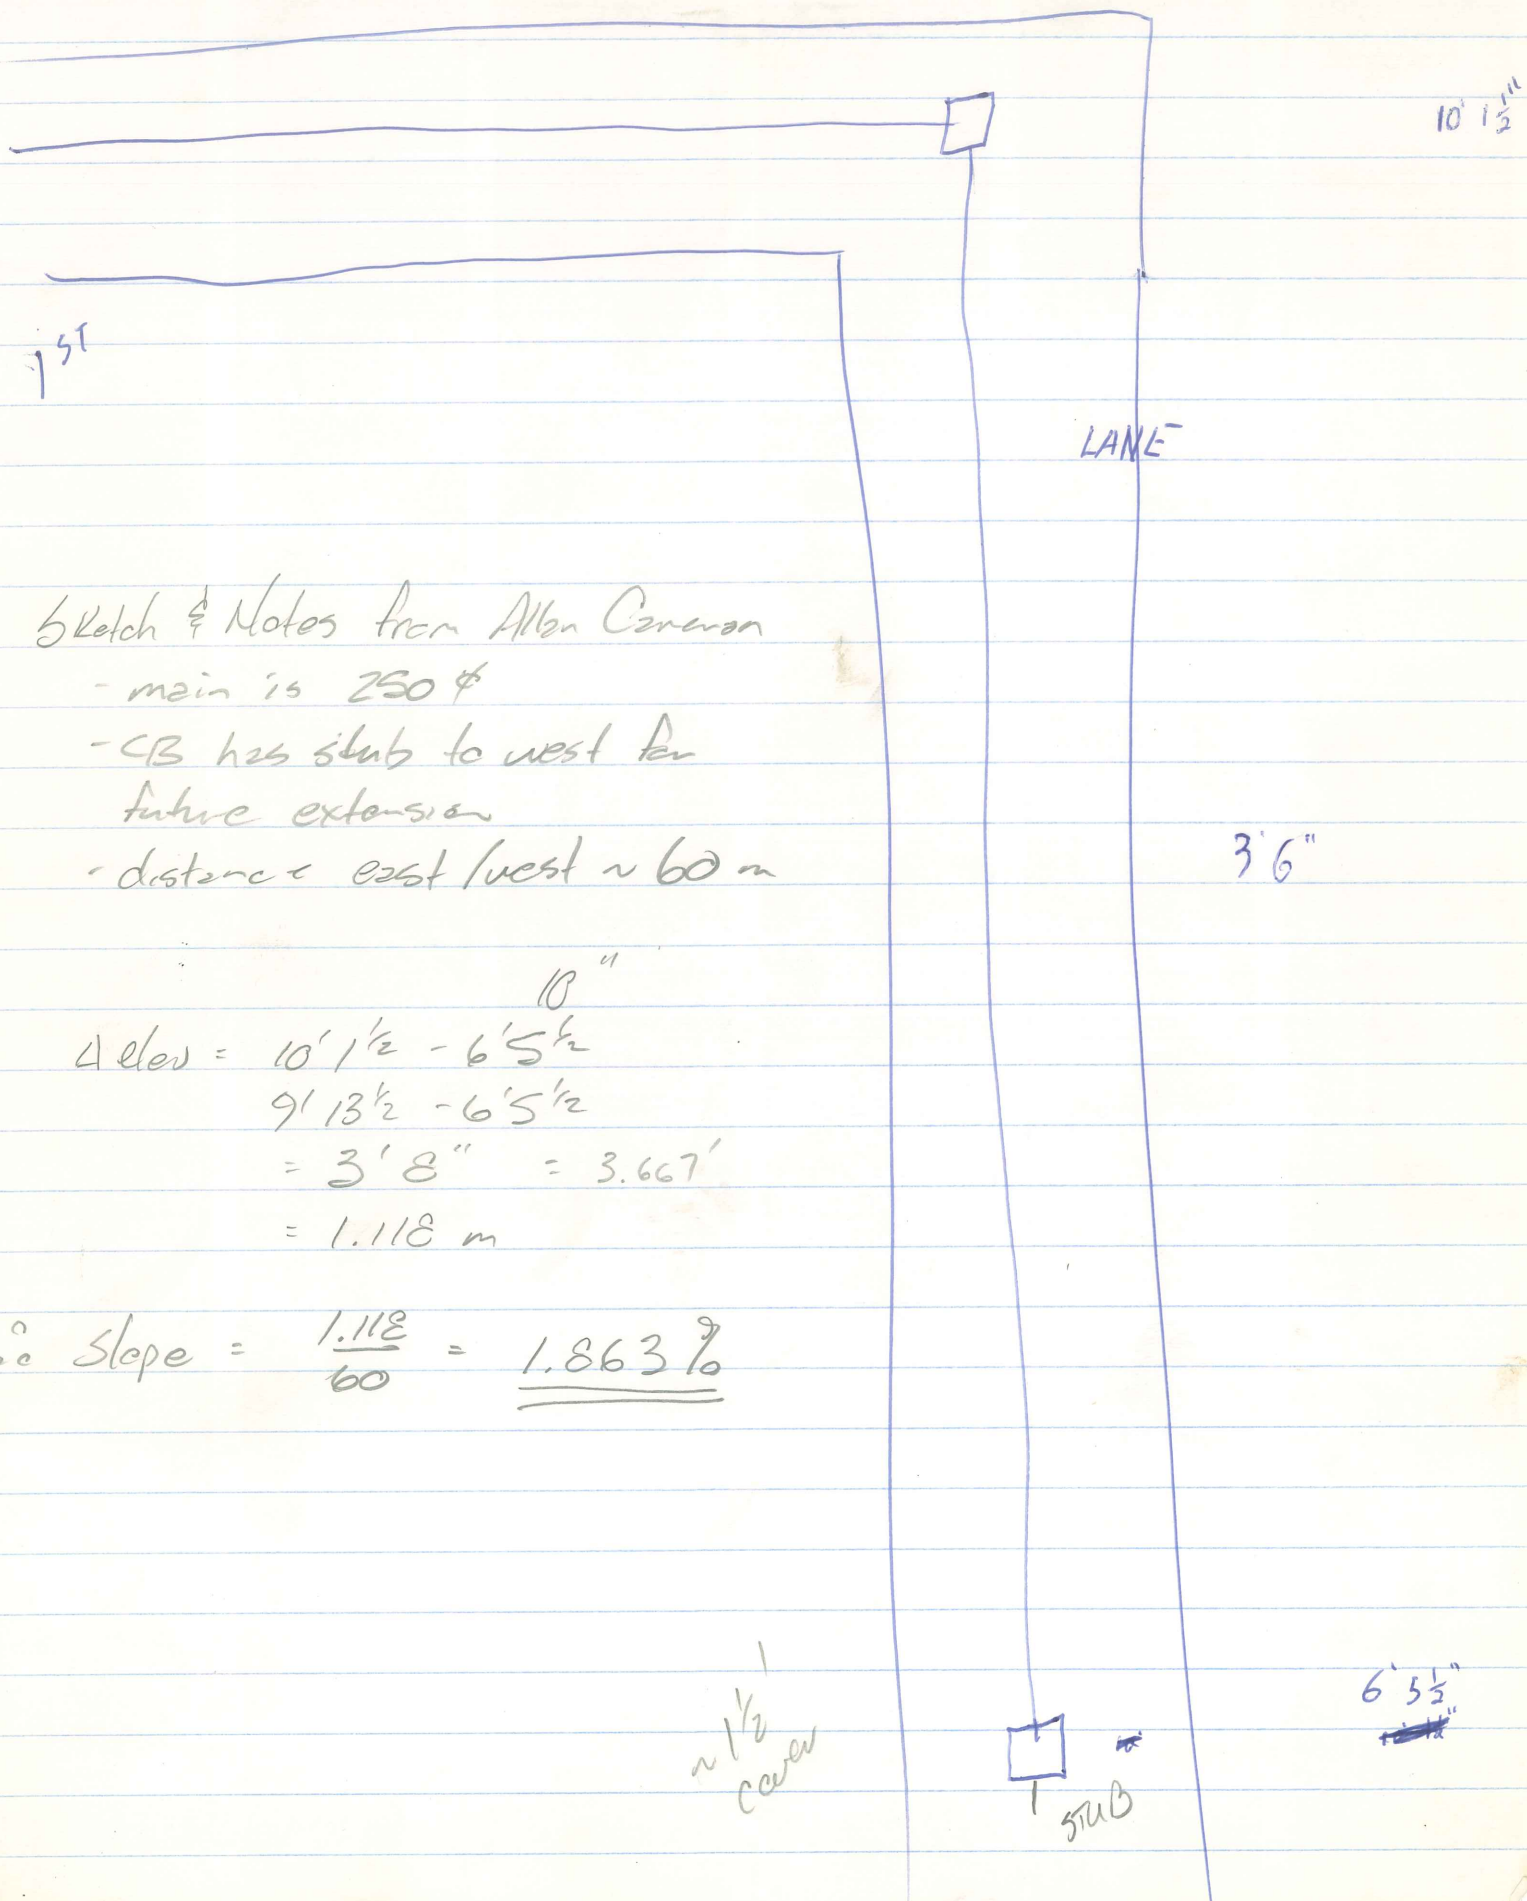 10' 1 1/2"
1ST
LANE
Sketch & Notes from Allan Cameron
- main is 250 ¢
- CB has stub to west for
future extension
- distance east/west ~ 60 m
3'6"
10"
Δ elev = 10' 1 1/2 - 6'5 1/2
9' 13 1/2 - 6'5 1/2
= 3' 8" = 3.667'
= 1.118 m
∴ Slope = 1.118/60 = 1.863%
~ 1 1/2'
cover
6' 5 1/2"
STUB